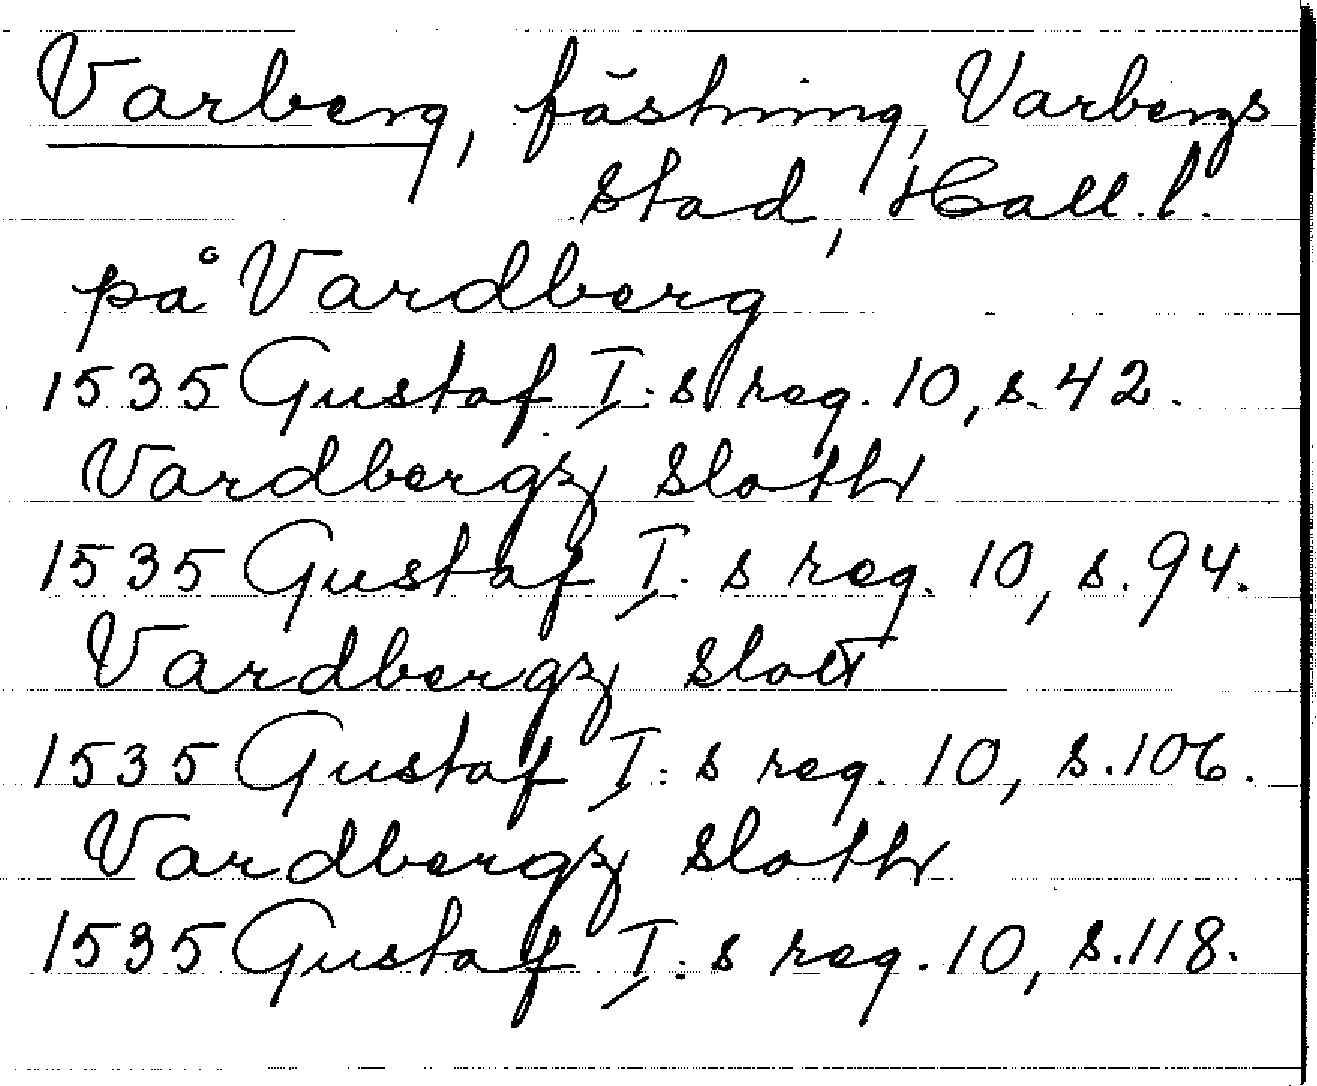 Varberg, fästning, Varbergs
stad, Hall. l.
på Vardberg
1535 Gustaf I:s reg. 10, s. 42.
Vardbergz sloth
1535 Gustaf I:s reg. 10, s. 94.
Vardbergz slott
1535 Gustaf I:s reg. 10, s. 106.
Vardbergz sloth
1535 Gustaf I:s reg. 10, s. 118.